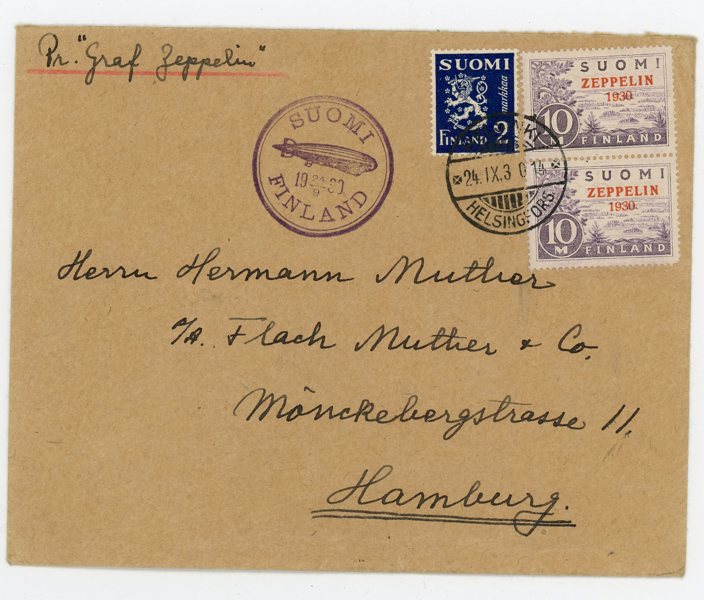 Pr. "Graf Zeppelin"
SUOMI
FINLAND
2
markkaa
SUOMI
ZEPPELIN
1930
10
FINLAND
SUOMI
ZEPPELIN
1930
10
M
FINLAND
SUOMI
19 24 30
9
FINLAND
24.IX.30 14
HELSINGFORS
Herrn Hermann Muther
Flach Muther & Co.
Mönckebergstrasse 11.
Hamburg.